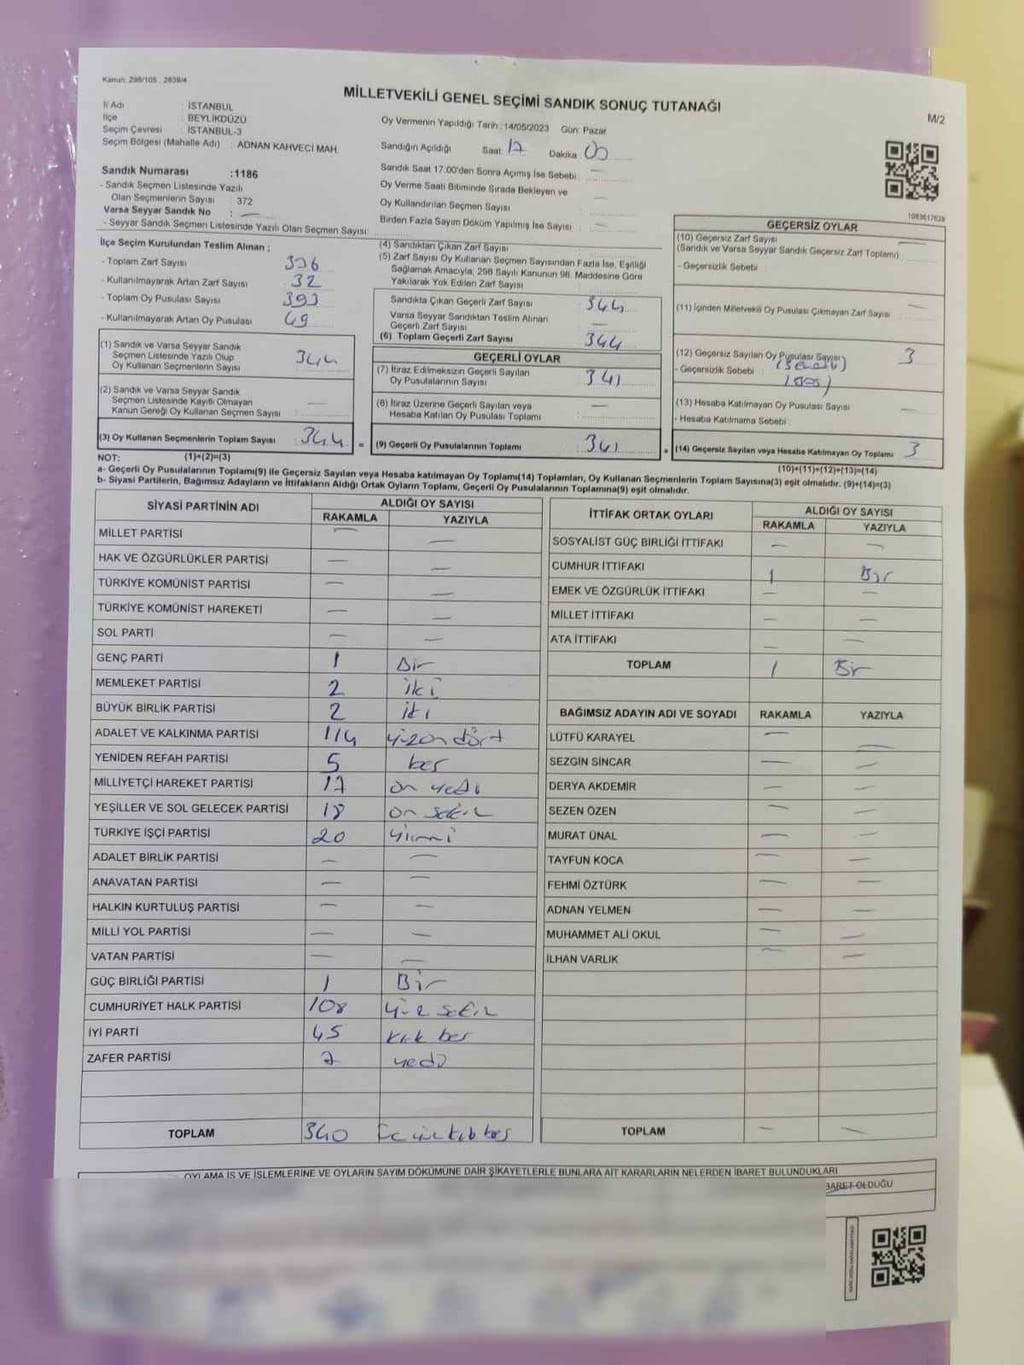 Kanun: 298/105 , 2839/4
MİLLETVEKİLİ GENEL SEÇİMİ SANDIK SONUÇ TUTANAĞI
M/2
İl Adı : İSTANBUL
İlçe : BEYLİKDÜZÜ
Seçim Çevresi : İSTANBUL-3
Seçim Bölgesi (Mahalle Adı) : ADNAN KAHVECİ MAH.
Oy Vermenin Yapıldığı Tarih :14/05/2023 Gün: Pazar
Sandığın Açıldığı Saat: 17 Dakika 00
Sandık Saat 17:00'den Sonra Açımış İse Sebebi: —
Oy Verme Saati Bitiminde Sırada Bekleyen ve
Oy Kullandırılan Seçmen Sayısı —
Birden Fazla Sayım Döküm Yapılmış İse Sayısı : —
1083617629
Sandık Numarası :1186
- Sandık Seçmen Listesinde Yazılı
Olan Seçmenlerin Sayısı 372
Varsa Seyyar Sandık No : —
- Seyyar Sandık Seçmen Listesinde Yazılı Olan Seçmen Sayısı:
İlçe Seçim Kurulundan Teslim Alınan ;
- Toplam Zarf Sayısı 376
- Kullanılmayarak Artan Zarf Sayısı 32
- Toplam Oy Pusulası Sayısı 393
- Kullanılmayarak Artan Oy Pusulası 49
(1) Sandık ve Varsa Seyyar Sandık
Seçmen Listesinde Yazılı Olup
Oy Kullanan Seçmenlerin Sayısı 344
(2) Sandık ve Varsa Seyyar Sandık
Seçmen Listesinde Kayıtlı Olmayan
Kanun Gereği Oy Kullanan Seçmen Sayısı —
(3) Oy Kullanan Seçmenlerin Toplam Sayısı 344 =
(4) Sandıktan Çıkan Zarf Sayısı
(5) Zarf Sayısı Oy Kullanan Seçmen Sayısından Fazla İse, Eşitliği
Sağlamak Amacıyla, 298 Sayılı Kanunun 98. Maddesine Göre
Yakılarak Yok Edilen Zarf Sayısı
Sandıkta Çıkan Geçerli Zarf Sayısı 344
Varsa Seyyar Sandıktan Teslim Alınan
Geçerli Zarf Sayısı —
(6) Toplam Geçerli Zarf Sayısı 344
GEÇERLİ OYLAR
(7) İtiraz Edilmeksizin Geçerli Sayılan
Oy Pusulalarının Sayısı 341
(8) İtiraz Üzerine Geçerli Sayılan veya
Hesaba Katılan Oy Pusulası Toplamı —
(9) Geçerli Oy Pusulalarının Toplamı 341 +
GEÇERSİZ OYLAR
(10) Geçersiz Zarf Sayısı —
(Sandık ve Varsa Seyyar Sandık Geçersiz Zarf Toplamı)
- Geçersizlik Sebebi
(11) İçinden Milletvekili Oy Pusulası Çıkmayan Zarf Sayısı —
(12) Geçersiz Sayılan Oy Pusulası Sayısı 3
- Geçersizlik Sebebi :
(13) Hesaba Katılmayan Oy Pusulası Sayısı —
- Hesaba Katılmama Sebebi :
(14) Geçersiz Sayılan veya Hesaba Katılmayan Oy Toplamı 3
NOT: (1)+(2)=(3) (10)+(11)+(12)+(13)=(14)
a- Geçerli Oy Pusulalarının Toplamı(9) ile Geçersiz Sayılan veya Hesaba katılmayan Oy Toplamı(14) Toplamları, Oy Kullanan Seçmenlerin Toplam Sayısına(3) eşit olmalıdır. (9)+(14)=(3)
b- Siyasi Partilerin, Bağımsız Adayların ve İttifakların Aldığı Ortak Oyların Toplamı, Geçerli Oy Pusulalarının Toplamına(9) eşit olmalıdır.
SİYASİ PARTİNİN ADI ALDIĞI OY SAYISI
RAKAMLA YAZIYLA
MİLLET PARTİSİ — —
HAK VE ÖZGÜRLÜKLER PARTİSİ — —
TÜRKİYE KOMÜNİST PARTİSİ — —
TÜRKİYE KOMÜNİST HAREKETİ — —
SOL PARTİ — —
GENÇ PARTİ 1 Bir
MEMLEKET PARTİSİ 2 iki
BÜYÜK BİRLİK PARTİSİ 2 iki
ADALET VE KALKINMA PARTİSİ 114 yüzon dört
YENİDEN REFAH PARTİSİ 5 beş
MİLLİYETÇİ HAREKET PARTİSİ 17 on yedi
YEŞİLLER VE SOL GELECEK PARTİSİ 18 on sekiz
TÜRKİYE İŞÇİ PARTİSİ 20 yirmi
ADALET BİRLİK PARTİSİ — —
ANAVATAN PARTİSİ — —
HALKIN KURTULUŞ PARTİSİ — —
MİLLİ YOL PARTİSİ — —
VATAN PARTİSİ — —
GÜÇ BİRLİĞİ PARTİSİ 1 Bir
CUMHURİYET HALK PARTİSİ 108 yüz sekiz
İYİ PARTİ 45 kırk beş
ZAFER PARTİSİ 7 yedi
TOPLAM 340
İTTİFAK ORTAK OYLARI ALDIĞI OY SAYISI
RAKAMLA YAZIYLA
SOSYALİST GÜÇ BİRLİĞİ İTTİFAKI — —
CUMHUR İTTİFAKI 1 Bir
EMEK VE ÖZGÜRLÜK İTTİFAKI — —
MİLLET İTTİFAKI — —
ATA İTTİFAKI — —
TOPLAM 1 Bir
BAĞIMSIZ ADAYIN ADI VE SOYADI RAKAMLA YAZIYLA
LÜTFÜ KARAYEL — —
SEZGİN SİNCAR — —
DERYA AKDEMİR — —
SEZEN ÖZEN — —
MURAT ÜNAL — —
TAYFUN KOCA — —
FEHMİ ÖZTÜRK — —
ADNAN YELMEN — —
MUHAMMET ALİ OKUL — —
İLHAN VARLIK — —
TOPLAM — —
OYLAMA İŞ VE İŞLEMLERİNE VE OYLARIN SAYIM DÖKÜMÜNE DAİR ŞİKAYETLERLE BUNLARA AİT KARARLARIN NELERDEN İBARET BULUNDUKLARI
İBARET OLDUĞU